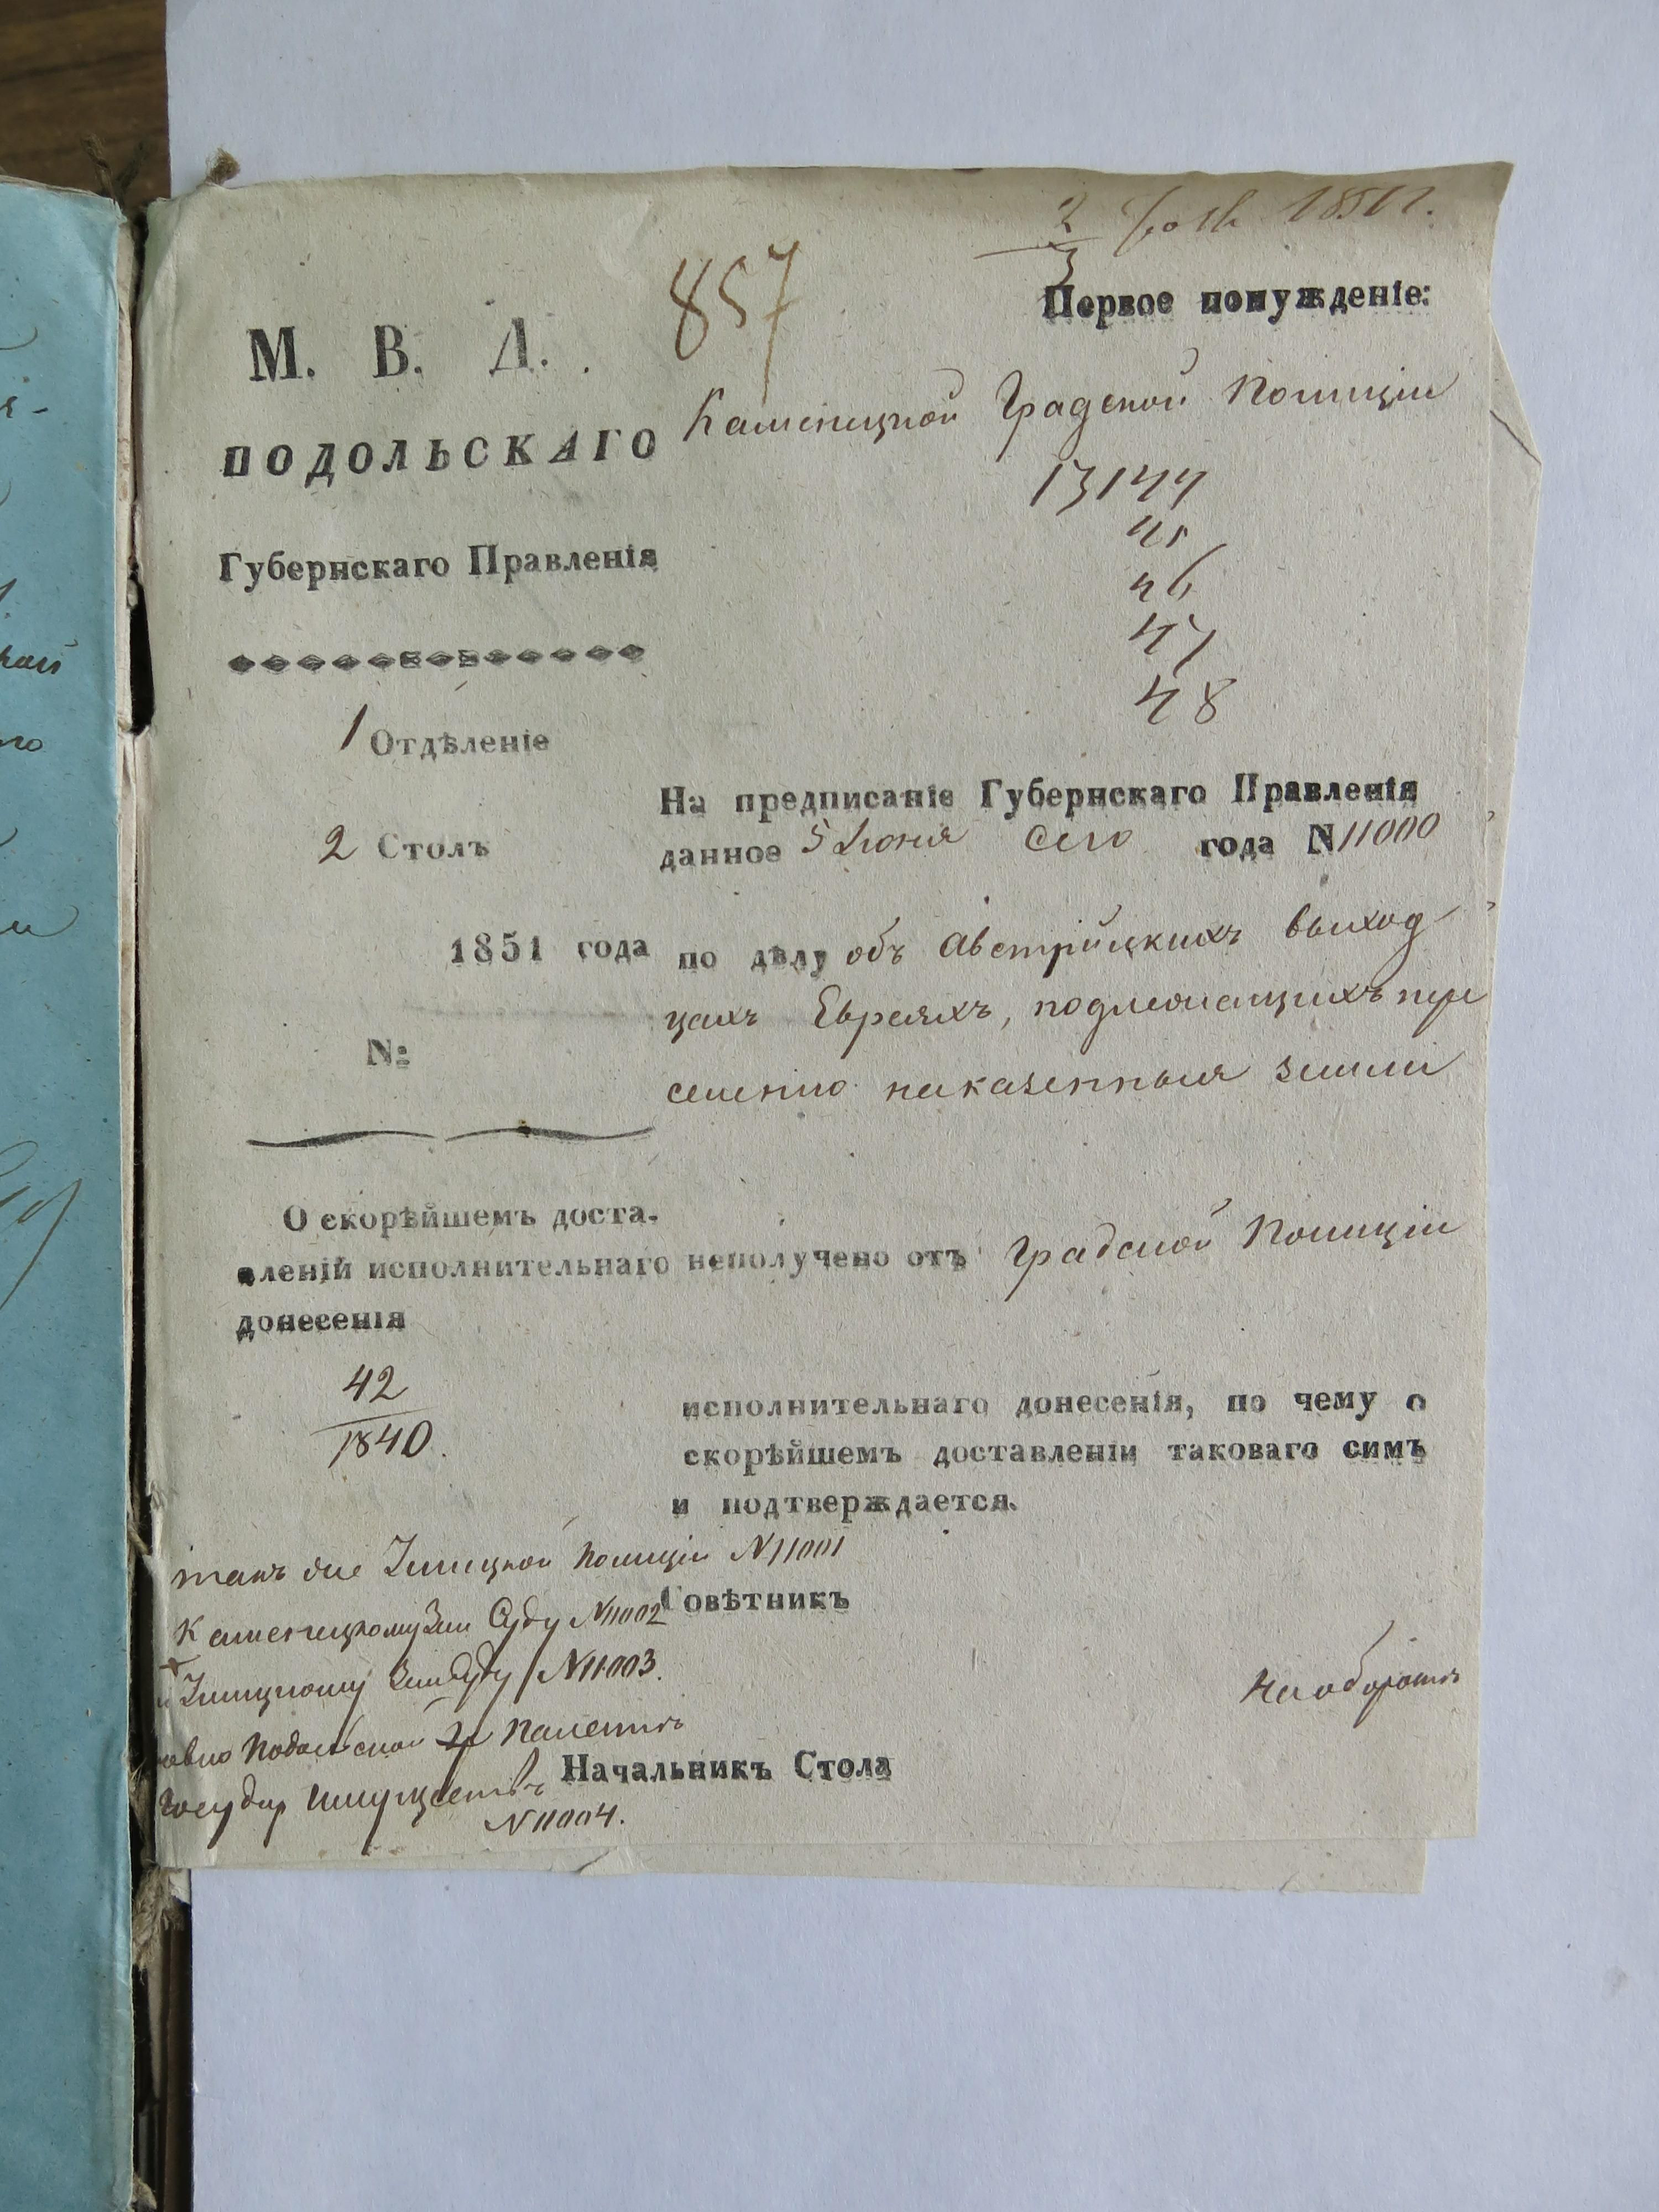 2/3 1851 г.
857
Первое понужденіе:
М. В. Д.
ПОДОЛЬСКАГО
Губернскаго Правленія
1 Отдѣленіе
2 Столъ
1851 года
№:
О скорѣйшемъ доста-
вленій исполнительнаго
донесенія
42
1840.
Каменицкой Градской Полиціи
13144
45
46
47
48
На предписаніе Губернскаго Правленія
данное 5 Іюня сего года N 11000
по дѣлу объ Австрійскихъ выход
цахъ Евреяхъ, подлежащихъ пере
селенію на казенныя земли
неполучено отъ Градской Полиціи
исполнительнаго донесенія, по чему о
скорѣйшемъ доставленіи таковаго симъ
и подтверждается.
такъ же Полиціи N 11001
Каменецкому Зем Суду N 11002
Зем Суду N 11003.
Подольской Палатѣ
Государ Имуществъ
N 11004.
Совѣтникъ
На оборотѣ
Начальникъ Стола